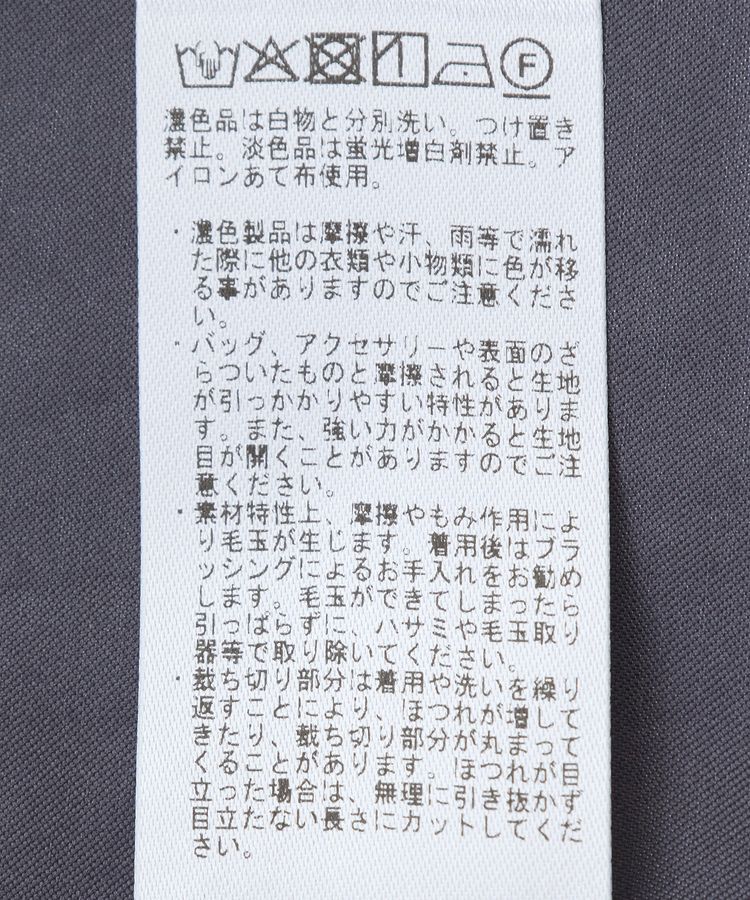 F
濃色品は白物と分別洗い。つけ置き
禁止。淡色品は蛍光増白剤禁止。ア
イロンあて布使用。
・濃色製品は摩擦や汗、雨等で濡れ
た際に他の衣類や小物類に色が移
る事がありますのでご注意くださ
い。
・バッグ、アクセサリーや表面のざ
らついたものと摩擦されると生地
が引っかかりやすい特性がありま
す。また、強い力がかかると生地
目が開くことがありますのでご注
意ください。
・素材特性上、摩擦やもみ作用によ
り毛玉が生じます。着用後はブラ
ッシングによるお手入れをお勧め
します。毛玉ができてしまったら
引っぱらずに、ハサミや毛玉取り
器等で取り除いてください。
・裁ち切り部分は着用や洗いを繰り
返すことにより、ほつれが増して
きたり、裁ち切り部分が丸まって
くることがあります。ほつれが目
立った場合は、無理に引き抜かず
目立たない長さにカットしてくだ
さい。